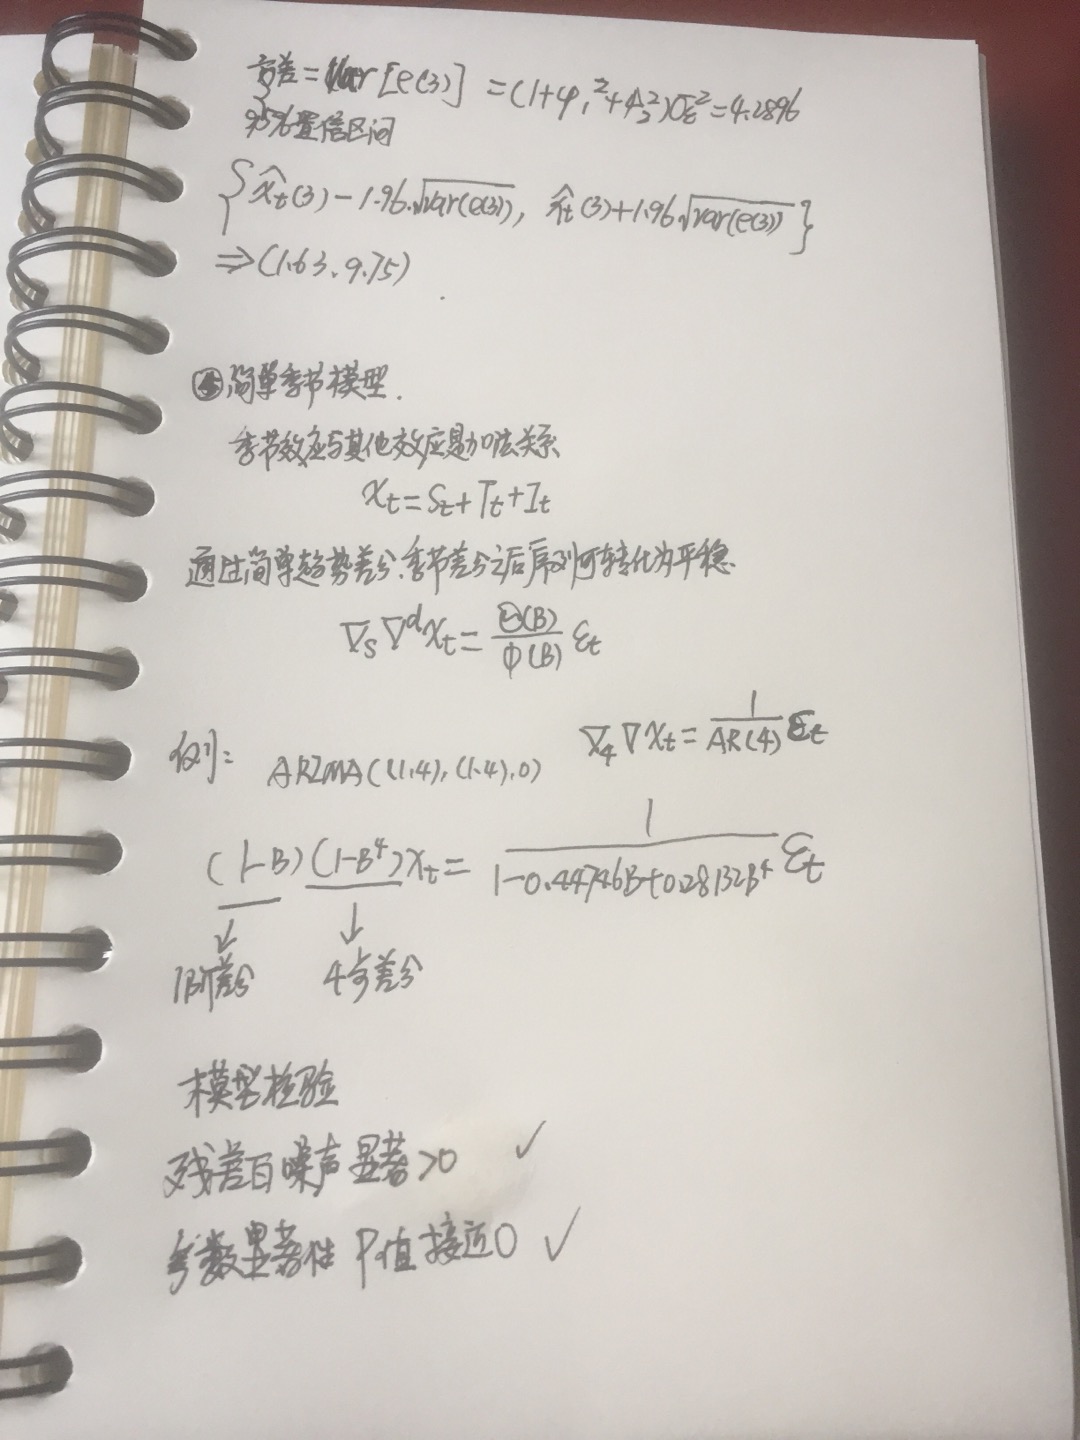 方差=Var[e(3)]=(1+φ₁²+φ₂²)σε²=4.2896
95%置信区间
{x̂t(3)-1.96·√var(e(3)), x̂t(3)+1.96√var(e(3))}
⇒(1.63, 9.75)
④简单季节模型.
季节效应与其他效应是加法关系
xt=St+Tt+It
通过简单趋势差分、季节差分之后序列可转化为平稳
∇s∇ᵈxt=Θ(B)/Φ(B) εt
例: ARIMA((1,4),(1,4),0) ∇₄∇xt=1/AR(4) εt
(1-B)(1-B⁴)xt=1/(1-0.44746B+0.28132B⁴) εt
↓ ↓
1阶差分 4步差分
模型检验
残差白噪声 显著>0 ✓
参数显著性 P值接近0 ✓